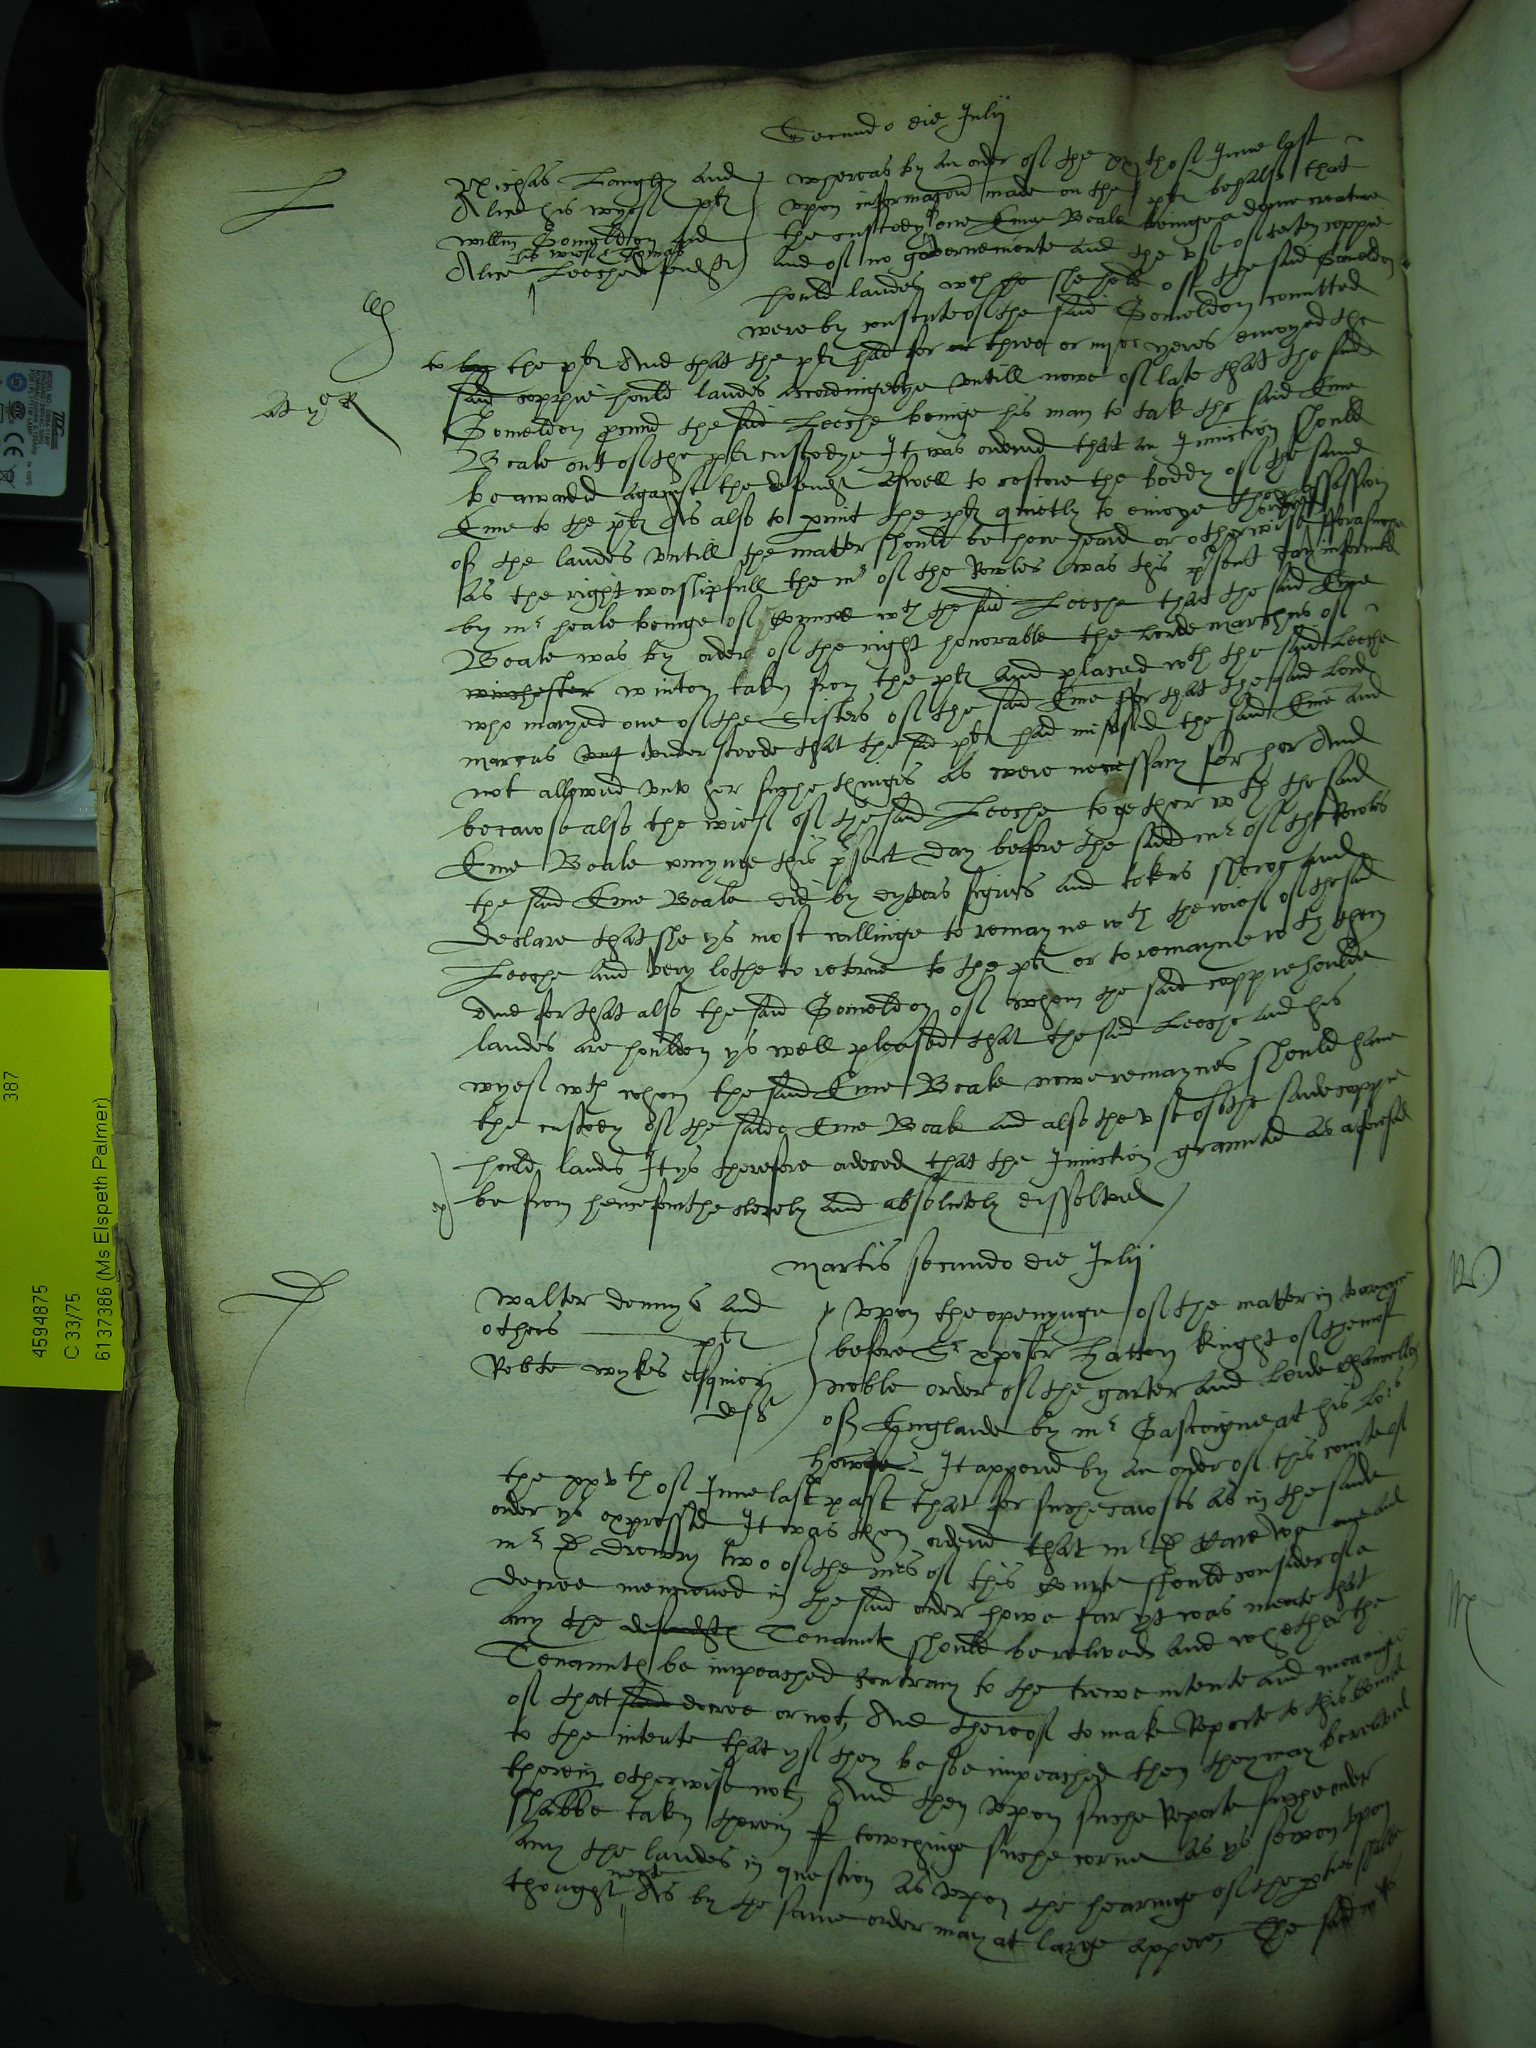 Secundo die Julij
Nichas Langley and
Alice his wyef pltes
Willm Someldon and
his wief Thomas
Alice Leeche defendtes
whereas by an order of the xj th of June last
upon informacon made on the pltes behalf that
the custody of one Eme Beale beinge a dome creature
and of no governemente and the use of certen coppie
hould landes wch she held of the said Someldon
were by consente of the said Someldon comitted
to the pltes And that the pltes had for three or iiij or yeres enioyed the
said coppie hould landes accordingelye untill nowe of late that the said
Someldon procured the said Leeche beinge his man to take the said Eme
Beale out of the pltes custodye It was ordered that an Iniunction should
be awarded against the defendtes aswell to restore the boddy of the same
Eme to the pltes As also to permit the pltes quietly to enioye the possession
of the landes untill the matter should be here heard or otherwise ordered Forasmuche
as the right worshipfull the mr of the Rowles was this present day informed
by mr heale beinge of councell wth the said Leeche that the said Eme
Beale was by order of the right honorable the Lorde marques of
winchester winton taken from the pltes and placed wth the said Leeche
who maryed one of the Sisters of the said Eme for that the said Lord
marques understoode that the said pltes had misused the said Eme and
not allowed unto her suche thinges as were necessary for her And
becawse also the wief of the said Leeche together wth the said
Eme Beale comynge this present day before the said mr of the Rowles
the said Eme Beale did by dyvers signes and tokens shewe and
declare that she ys most willinge to remayne wth the wief of the said
Leeche and very lothe to retorne to the pltes or to remayne wth them
And for that also the said Someldon of whom the said coppie houlde
landes are houlden ys well pleased that the said Leeche and his
wyef wth whom the said Eme Beale nowe remaynes should have
the custody of the said Eme Beale and also the use of the saide coppie
hould landes It ys therefore ordered that the Iniunction graunted as aforesaid
be from henceforthe clerely and absolutely dissolved
Martis secundo die Julij
Walter Dennys and
others pltes
Robte Wykes esquior
deft
Upon the openynge of the matter in variance
before Sr xpofer Hatton knight of the most
noble order of the garter and Lorde Chauncellor
of Englande by mr Gascoigne at his Lops
howse It appered by an order of this courte of
the xxvth of June last past that for suche cawses as in the saide
order ys expressed It was then ordered that mr D Carewe and
mr D Drewry two of the mrs of this courte should consider of a
decree mencioned in the said order howe far yt was mente that
any the defendtes Tenauntes should be relived and whether the
Tenauntes be impeached contrary to the trewe intente and meaninge
of that said decree or not, And thereof to make Reporte to this courte
to the intente that yf they be soe impeached then they may be relived
therein otherwise not, And then upon suche Reporte suche order
shalbe taken therein towchinge suche corne as ys sowen upon
any the landes in question as upon the hearinge of the parties shalbe
thought meete As by the same order may at large appere, The said mr
387
4594875
C 33/75
6137386 (Ms Elspeth Palmer)